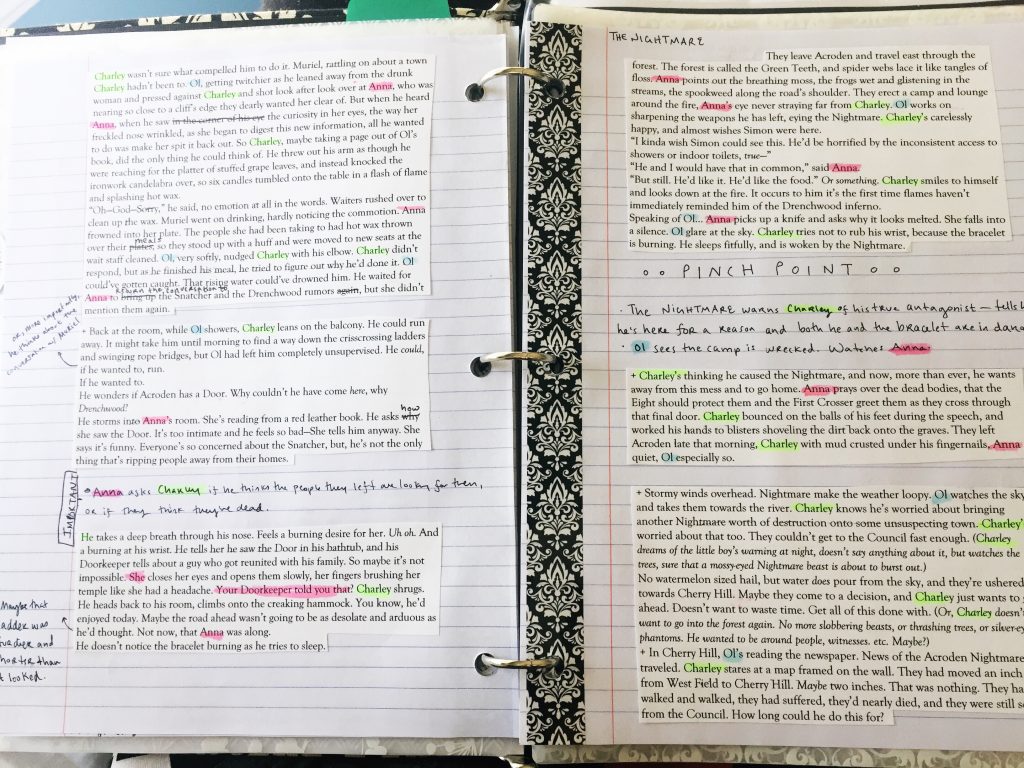 Charley wasn't sure what compelled him to do it. Muriel, rattling on about a town
Charley hadn't been to. Ol, getting twitchier as he leaned away from the drunk
woman and pressed against Charley and shot look after look over at Anna, who was
nearing so close to a cliff's edge they dearly wanted her clear of. But when he heard
Anna, when he saw in the corner of his eye the curiosity in her eyes, the way her
freckled nose wrinkled, as she began to digest this new information, all he wanted
to do was make her spit it back out. So Charley, maybe taking a page out of Ol's
book, did the only thing he could think of. He threw out his arm as though he
were reaching for the platter of stuffed grape leaves, and instead knocked the
ironwork candelabra over, so six candles tumbled onto the table in a flash of flame
and splashing hot wax.
"Oh–God–Sorry," he said, no emotion at all in the words. Waiters rushed over to
clean up the wax. Muriel went on drinking, hardly noticing the commotion. Anna
frowned into her plate. The people she had been taking to had hot wax thrown
meals
over their plates, so they stood up with a huff and were moved to new seats at the
wait staff cleaned. Ol, very softly, nudged Charley with his elbow. Charley didn't
respond, but as he finished his meal, he tried to figure out why he'd done it. Ol
could've gotten caught. That rising water could've drowned him. He waited for
return the conversation to
Anna to bring up the Snatcher and the Drenchwood rumors again, but she didn't
mention them again.
or, more importantly,
he thinks about the
conversation w/ Muriel
+ Back at the room, while Ol showers, Charley leans on the balcony. He could run
away. It might take him until morning to find a way down the crisscrossing ladders
and swinging rope bridges, but Ol had left him completely unsupervised. He could,
if he wanted to, run.
If he wanted to.
He wonders if Acroden has a Door. Why couldn't he have come here, why
Drenchwood?
how
He storms into Anna's room. She's reading from a red leather book. He asks why
she saw the Door. It's too intimate and he feels so bad–She tells him anyway. She
says it's funny. Everyone's so concerned about the Snatcher, but, he's not the only
thing that's ripping people away from their homes.
IMPORTANT
+ Anna asks Charley if he thinks the people they left are looking for them,
or if they think they're dead.
He takes a deep breath through his nose. Feels a burning desire for her. Uh oh. And
a burning at his wrist. He tells her he saw the Door in his bathtub, and his
Doorkeeper tells about a guy who got reunited with his family. So maybe it's not
impossible. She closes her eyes and opens them slowly, her fingers brushing her
temple like she had a headache. Your Doorkeeper told you that? Charley shrugs.
He heads back to his room, climbs onto the creaking hammock. You know, he'd
enjoyed today. Maybe the road ahead wasn't going to be as desolate and arduous as
he'd thought. Not now, that Anna was along.
He doesn't notice the bracelet burning as he tries to sleep.
Maybe that
ladder was
further and
shorter than
it looked.
THE NIGHTMARE
They leave Acroden and travel east through the
forest. The forest is called the Green Teeth, and spider webs lace it like tangles of
floss. Anna points out the breathing moss, the frogs wet and glistening in the
streams, the spookweed along the road's shoulder. They erect a camp and lounge
around the fire, Anna's eye never straying far from Charley. Ol works on
sharpening the weapons he has left, eying the Nightmare. Charley's carelessly
happy, and almost wishes Simon were here.
"I kinda wish Simon could see this. He'd be horrified by the inconsistent access to
showers or indoor toilets, true–"
"He and I would have that in common," said Anna.
"But still. He'd like it. He'd like the food." Or something. Charley smiles to himself
and looks down at the fire. It occurs to him it's the first time flames haven't
immediately reminded him of the Drenchwood inferno.
Speaking of Ol... Anna picks up a knife and asks why it looks melted. She falls into
a silence. Ol glare at the sky. Charley tries not to rub his wrist, because the bracelet
is burning. He sleeps fitfully, and is woken by the Nightmare.
o o PINCH POINT o o
· The NIGHTMARE warns Charley of his true antagonist – tells
he's here for a reason and both he and the bracelet are in
· Ol sees the camp is wrecked. Watches Anna.
+ Charley's thinking he caused the Nightmare, and now, more than ever, he wants
away from this mess and to go home. Anna prays over the dead bodies, that the
Eight should protect them and the First Crosser greet them as they cross through
that final door. Charley bounced on the balls of his feet during the speech, and
worked his hands to blisters shoveling the dirt back onto the graves. They left
Acroden late that morning, Charley with mud crusted under his fingernails, Anna
quiet, Ol especially so.
+ Stormy winds overhead. Nightmare make the weather loopy. Ol watches the sky
and takes them towards the river. Charley knows he's worried about bringing
another Nightmare worth of destruction onto some unsuspecting town. Charley's
worried about that too. They couldn't get to the Council fast enough. (Charley
dreams of the little boy's warning at night, doesn't say anything about it, but watches the
trees, sure that a mossy-eyed Nightmare beast is about to burst out.)
No watermelon sized hail, but water does pour from the sky, and they're ushered
towards Cherry Hill. Maybe they come to a decision, and Charley just wants to
ahead. Doesn't want to waste time. Get all of this done with. (Or, Charley doesn't
want to go into the forest again. No more slobbering beasts, or thrashing trees, or
phantoms. He wanted to be around people, witnesses. etc. Maybe?)
+ In Cherry Hill, Ol's reading the newspaper. News of the Acroden Nightmare
traveled. Charley stares at a map framed on the wall. They had moved an inch
from West Field to Cherry Hill. Maybe two inches. That was nothing. They had
walked and walked, they had suffered, they'd nearly died, and they were still so
from the Council. How long could he do this for?